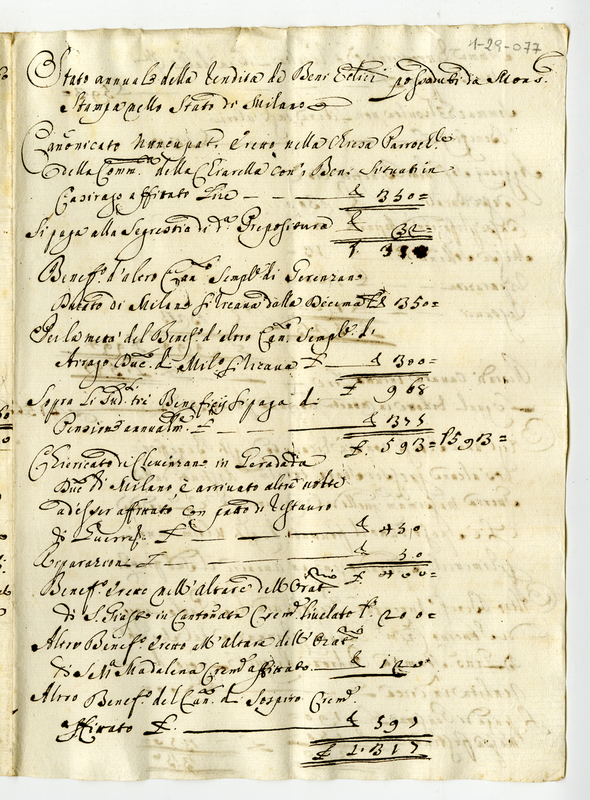 1-29-077
Stato annuale della Rendita de Beni posseduti da Mons.
Stampa nello Stato di Milano
Canonicato nuncupat. eretto nella Chiesa Parroch.le
della Comm. della con Beni Situati in
affittato Lire £ 350=
Si paga alla Segrestia di d.a Prepositura £ 32=
£
Benef.o d'altro Can. Sempl. di Gerenzano
Ducato di Milano si ricava dalla Decima £ 1350=
Per la metà del Benef.o d'altro Can. Sempl. di
Arzago Duc. di Mil.o si ricava £ 300=
£ 968
Sopra li Sud.ti tre Beneficij si paga di
Pensione annualm. £ 1375
£ 593= 1593=
Chiericato di in Geradada
Duc. di Milano, è arrivato altre volte
ad esser affittato con patto di restauro
di Guerre £ 450
Reparazion £ 50
£ 400=
Benef.o eretto nell'Altare dell'Orat.rio
di S. in Cantonata Crem. livelato £ 200=
Altro Benef.o eretto all'Altare dell'Orat.rio
di S. M. Madalena Crem. affittato £ 120
Altro Benef.o del Can. di Sospiro Crem.
affittato £ £ 597
£ 1317